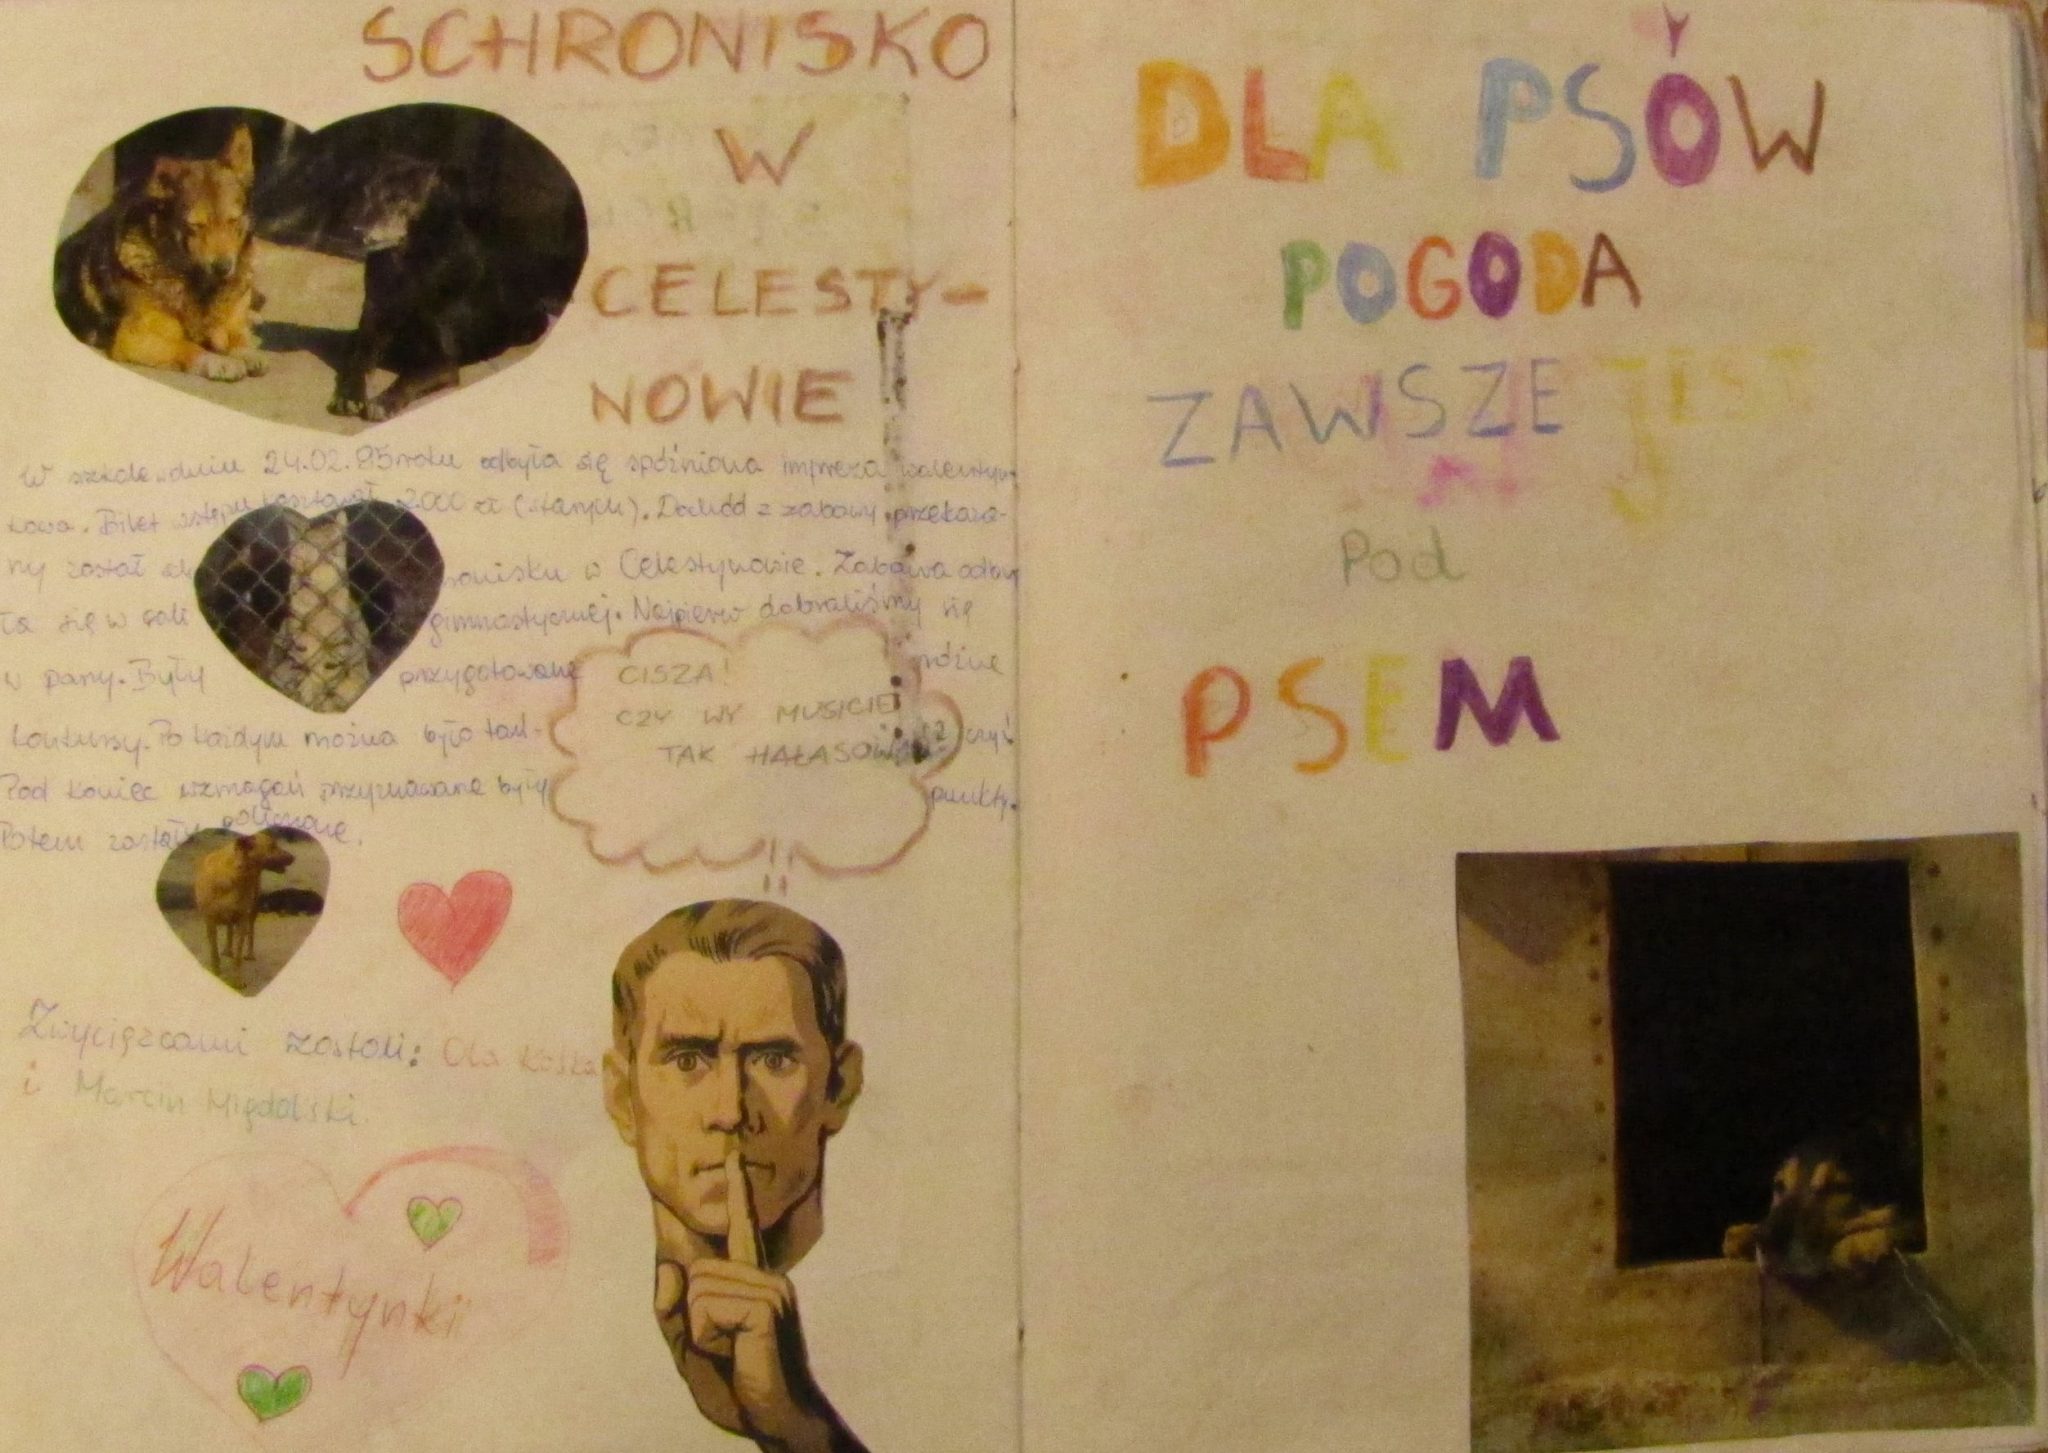 SCHRONISKO
W
CELESTY-
NOWIE
W szkole w dniu 24.02.95 roku odbyła się spóźniona impreza walentyn-
kowa. Bilet wstępu kosztował 2000 zł (starych). Dochód z zabawy przekaza-
ny został w Celestynowie. Zabawa odby
ła się w sali gimnastycznej. Najpierw dobraliśmy się
w pary. Były przygotowane różne
konkursy. Po każdym można było tań- czyć
Pod koniec zmagań przyznawane były punkty.
Potem zostały policzone.
CISZA!
CZY WY MUSICIE
TAK HAŁASOWAĆ?
Zwycięzcami zostali: Ola
i Marcin Migdalski.
Walentynki
DLA PSÓW
POGODA
ZAWSZE JEST
Pod
PSEM